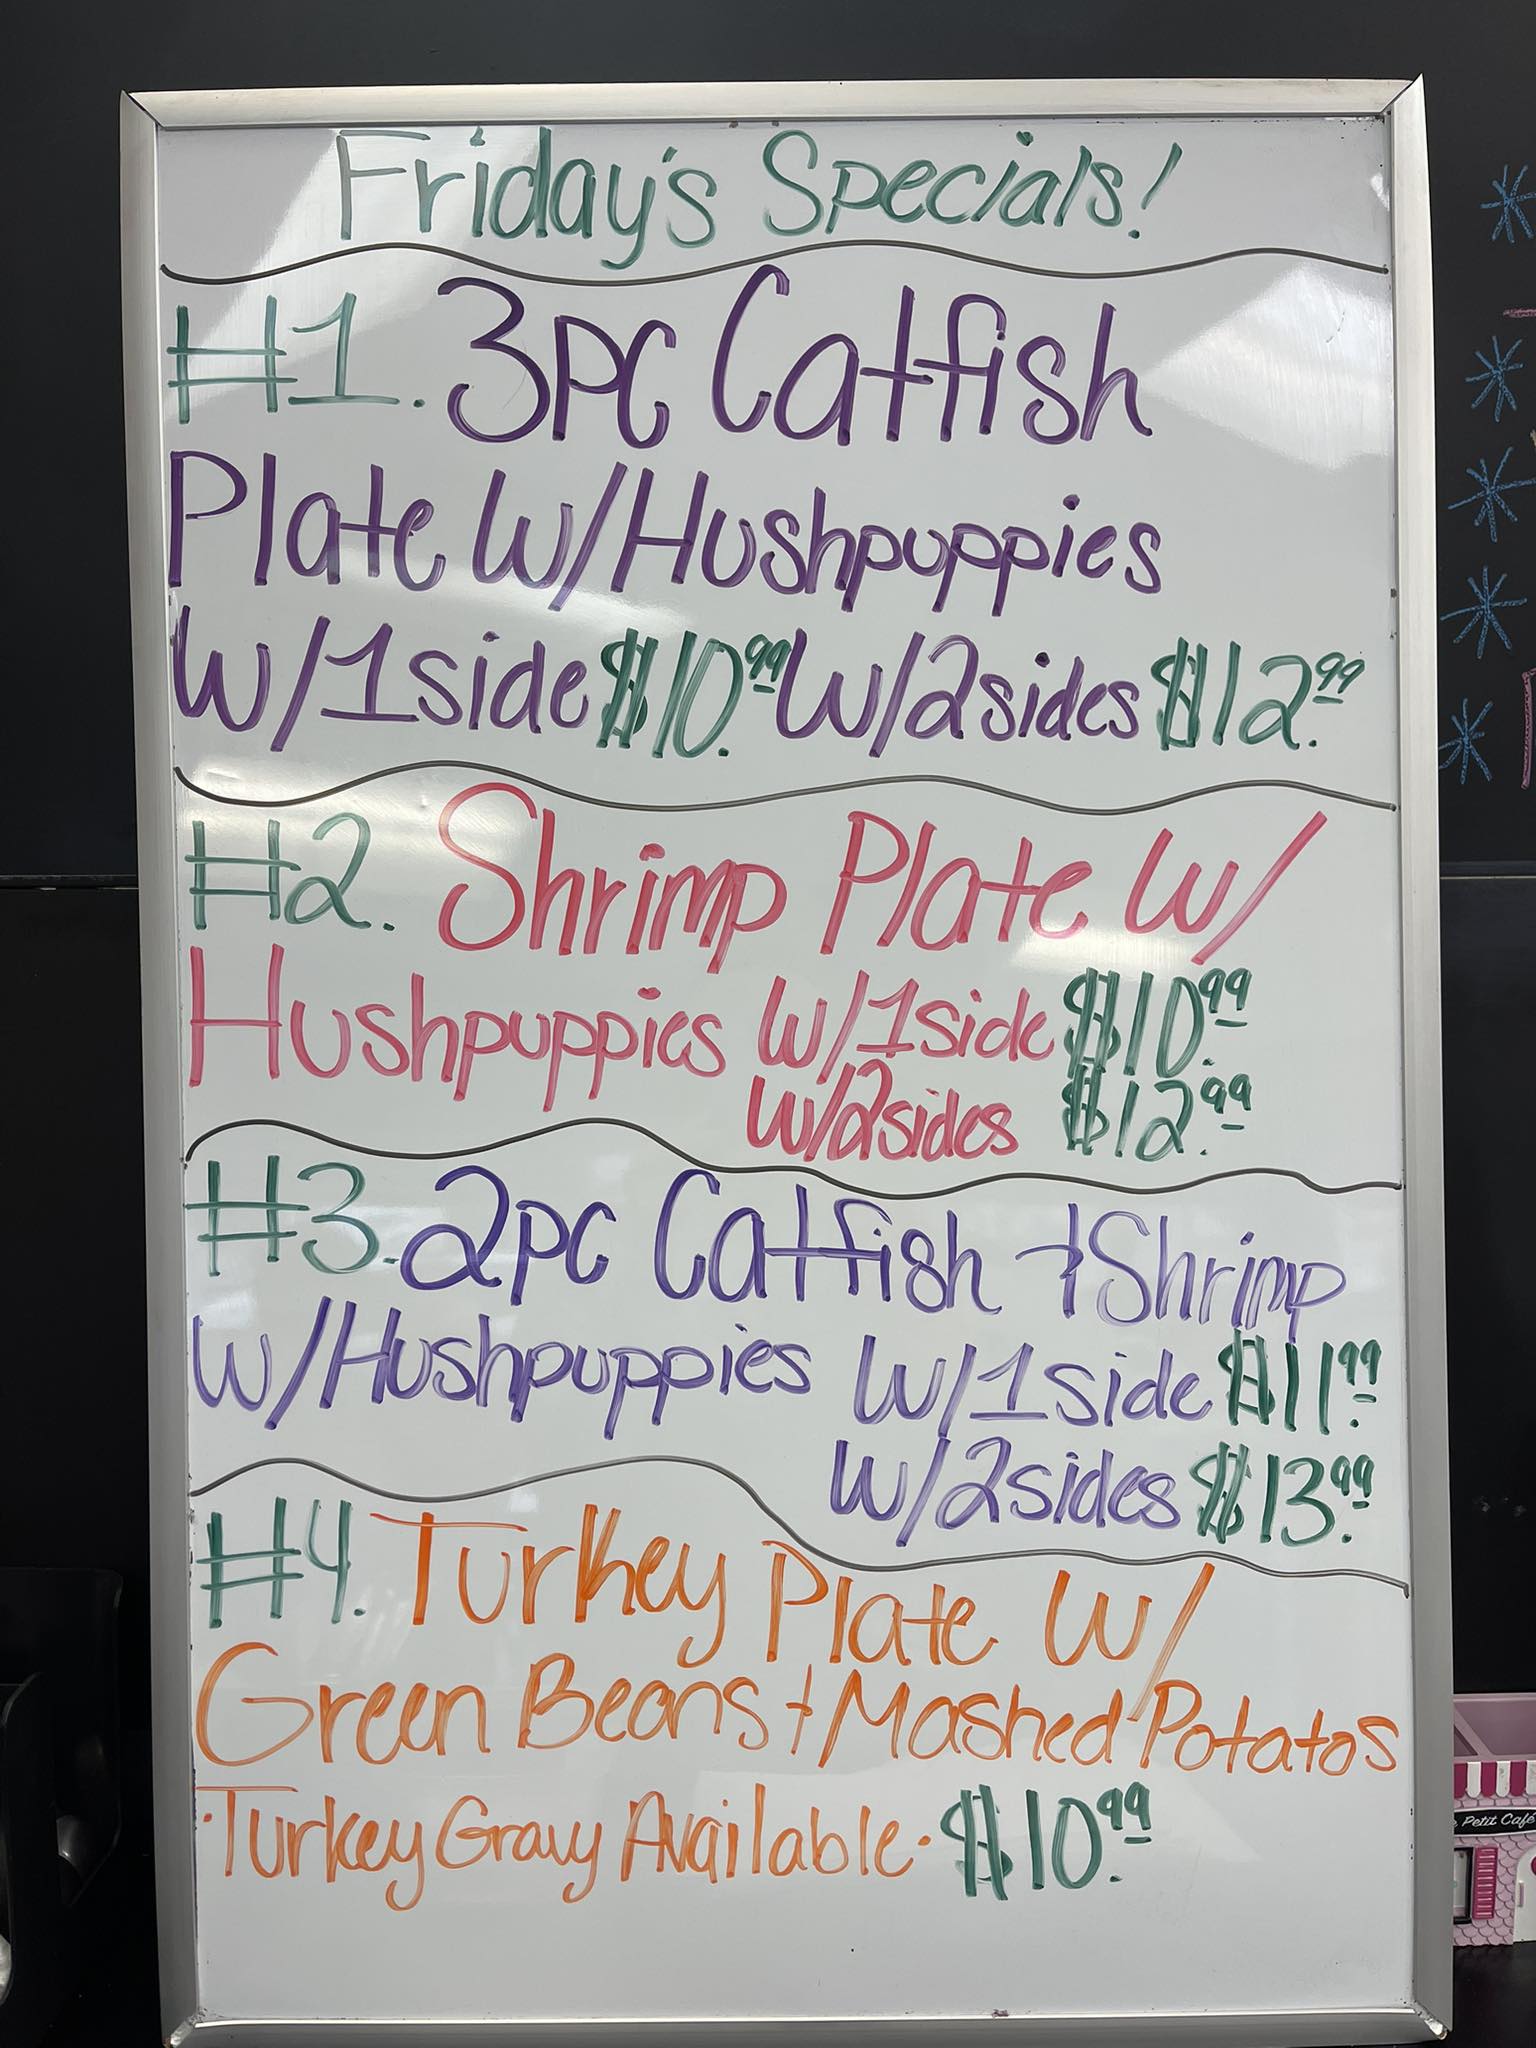 Friday's Specials!
#1. 3pc Catfish
Plate W/Hushpuppies
W/1side $10.99 W/2sides $12.99
#2. Shrimp Plate W/
Hushpuppies W/1side $10.99
W/2sides $12.99
#3. 2pc Catfish + Shrimp
W/Hushpuppies W/1side $11.99
W/2sides $13.99
#4. Turkey Plate W/
Green Beans + Mashed Potatos
·Turkey Gravy Available· $10.99
Petit Café